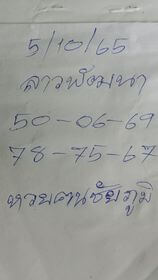 5/10/65
ลาวพัฒนา
50-06-69
78-75-67
หวยคนชัยภูมิ